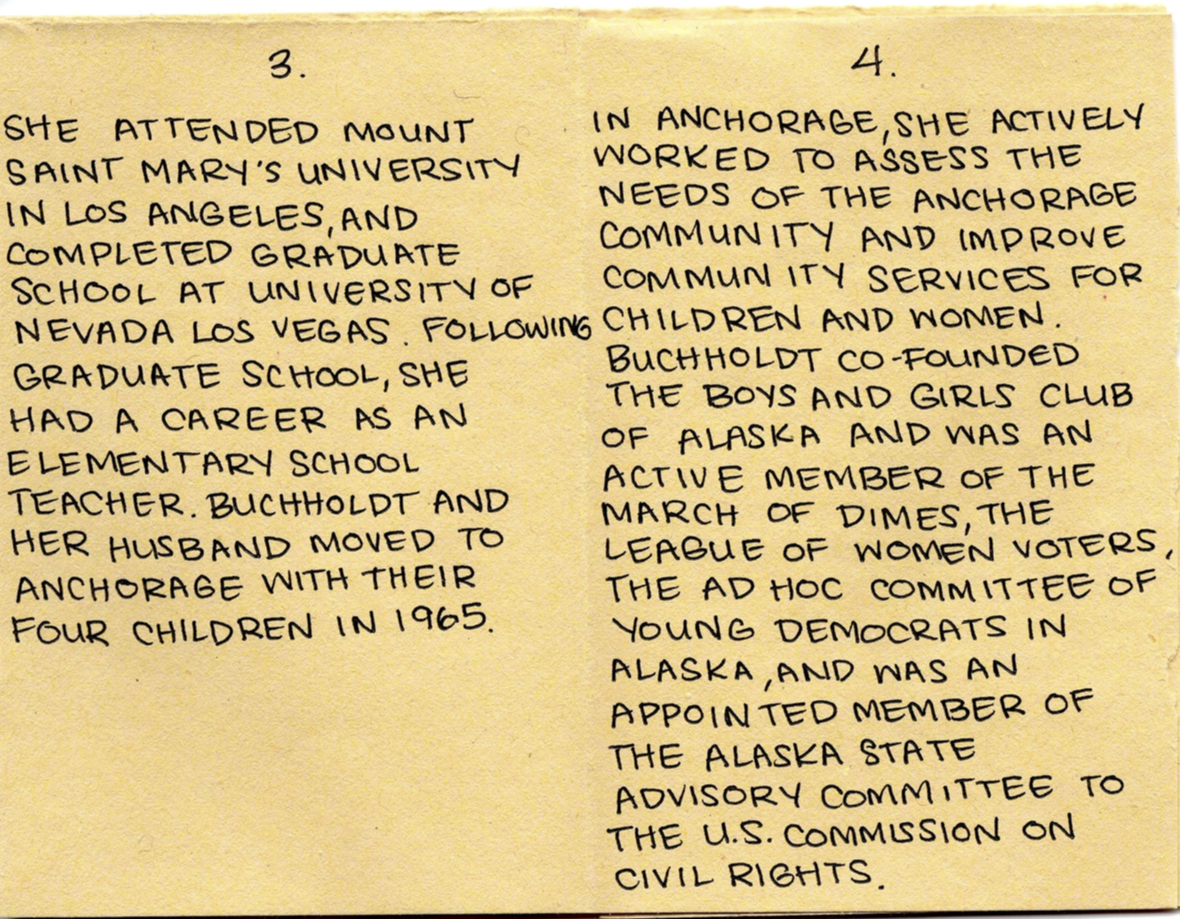 3.
SHE ATTENDED MOUNT
SAINT MARY'S UNIVERSITY
IN LOS ANGELES, AND
COMPLETED GRADUATE
SCHOOL AT UNIVERSITY OF
NEVADA LOS VEGAS. FOLLOWING
GRADUATE SCHOOL, SHE
HAD A CAREER AS AN
ELEMENTARY SCHOOL
TEACHER. BUCHHOLDT AND
HER HUSBAND MOVED TO
ANCHORAGE WITH THEIR
FOUR CHILDREN IN 1965.
4.
IN ANCHORAGE, SHE ACTIVELY
WORKED TO ASSESS THE
NEEDS OF THE ANCHORAGE
COMMUNITY AND IMPROVE
COMMUNITY SERVICES FOR
CHILDREN AND WOMEN.
BUCHHOLDT CO-FOUNDED
THE BOYS AND GIRLS CLUB
OF ALASKA AND WAS AN
ACTIVE MEMBER OF THE
MARCH OF DIMES, THE
LEAGUE OF WOMEN VOTERS,
THE AD HOC COMMITTEE OF
YOUNG DEMOCRATS IN
ALASKA, AND WAS AN
APPOINTED MEMBER OF
THE ALASKA STATE
ADVISORY COMMITTEE TO
THE U.S. COMMISSION ON
CIVIL RIGHTS.